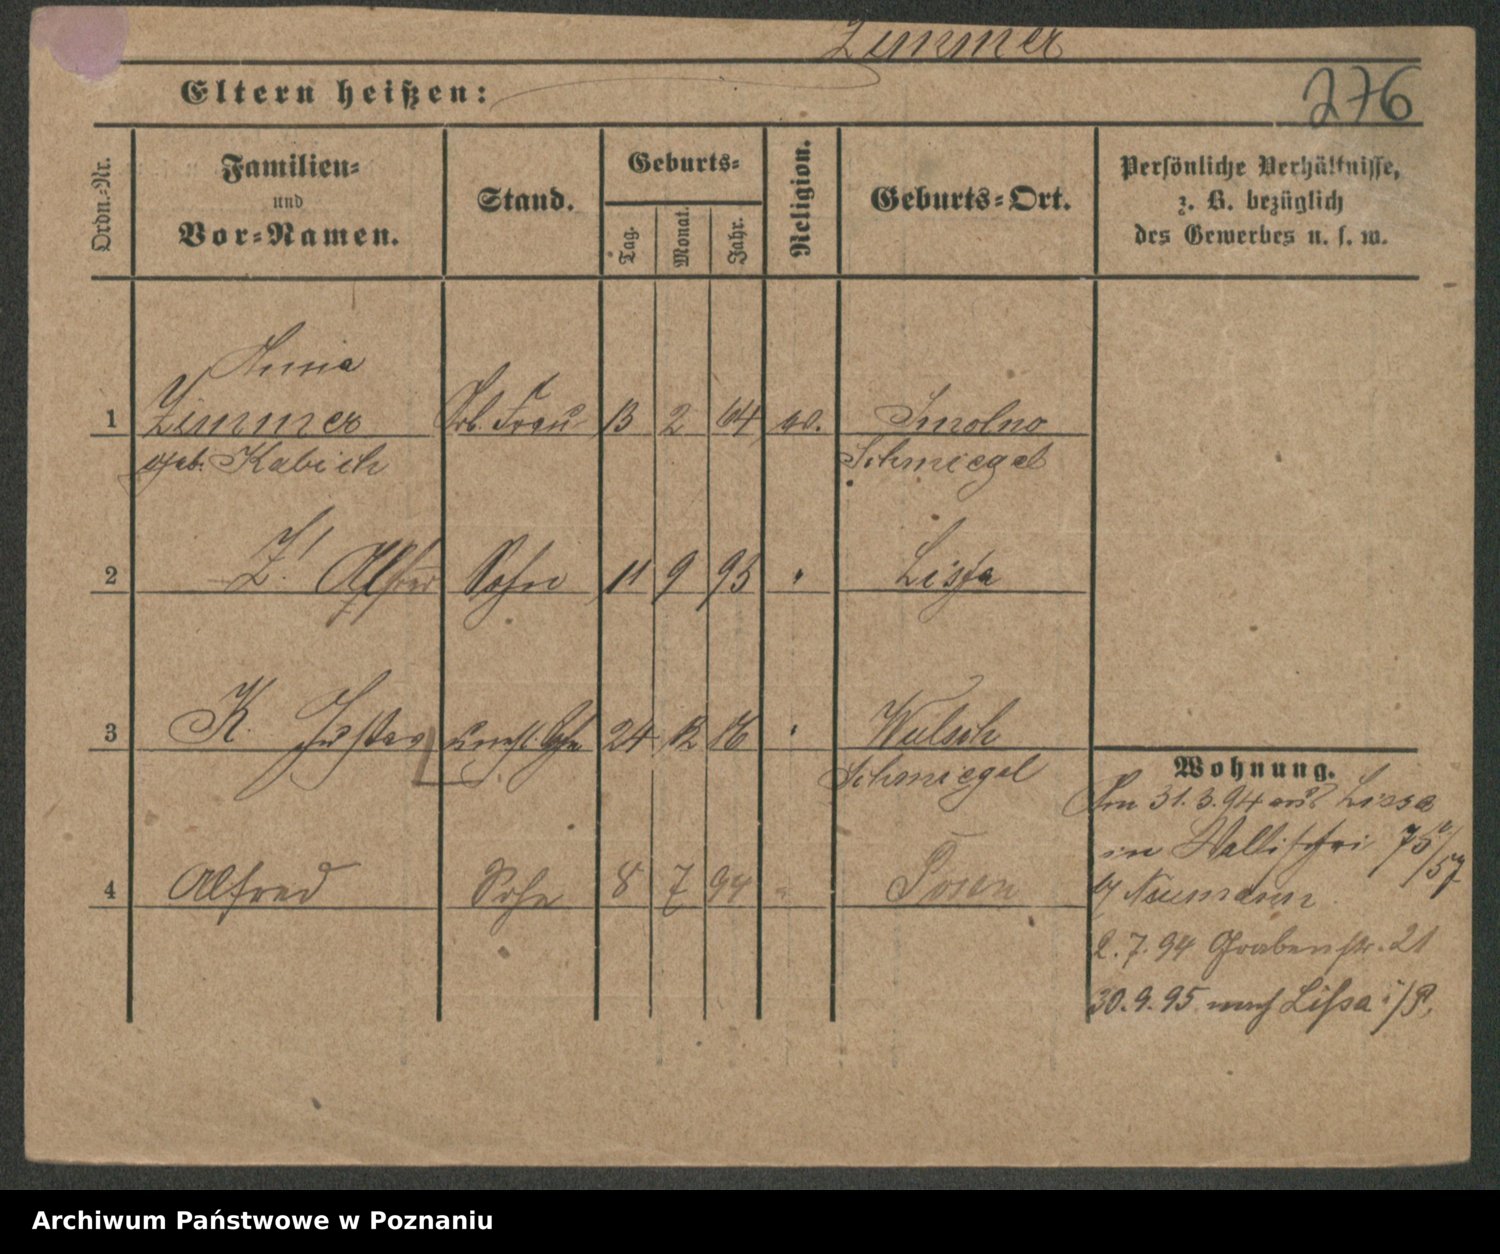 Zimmer
Eltern heißen:
276
Ordn.-Nr.
Familien-
und
Vor-Namen.
Stand.
Geburts-
Tag.
Monat.
Jahr.
Religion.
Geburts-Ort.
Persönliche Verhältnisse,
z. B. bezüglich
des Gewerbes u. s. w.
Anna
1 Zimmer Arb. Frau 13 2 64 ev. Smolno
geb. Kabich Schmiegel
2 Z. Alfred Sohn 11 9 93 " Lissa
3 K. Gustav unehl. Sohn 24 12 86 " Wulsch
Schmiegel
4 Alfred Sohn 8 7 94 " Posen
Wohnung.
Am 31.3.94 aus Lissa
in Wallischei 75/57
b/ Neumann
2.7.94 Grabenstr. 21
30.9.95 nach Lissa i/P.
Archiwum Państwowe w Poznaniu